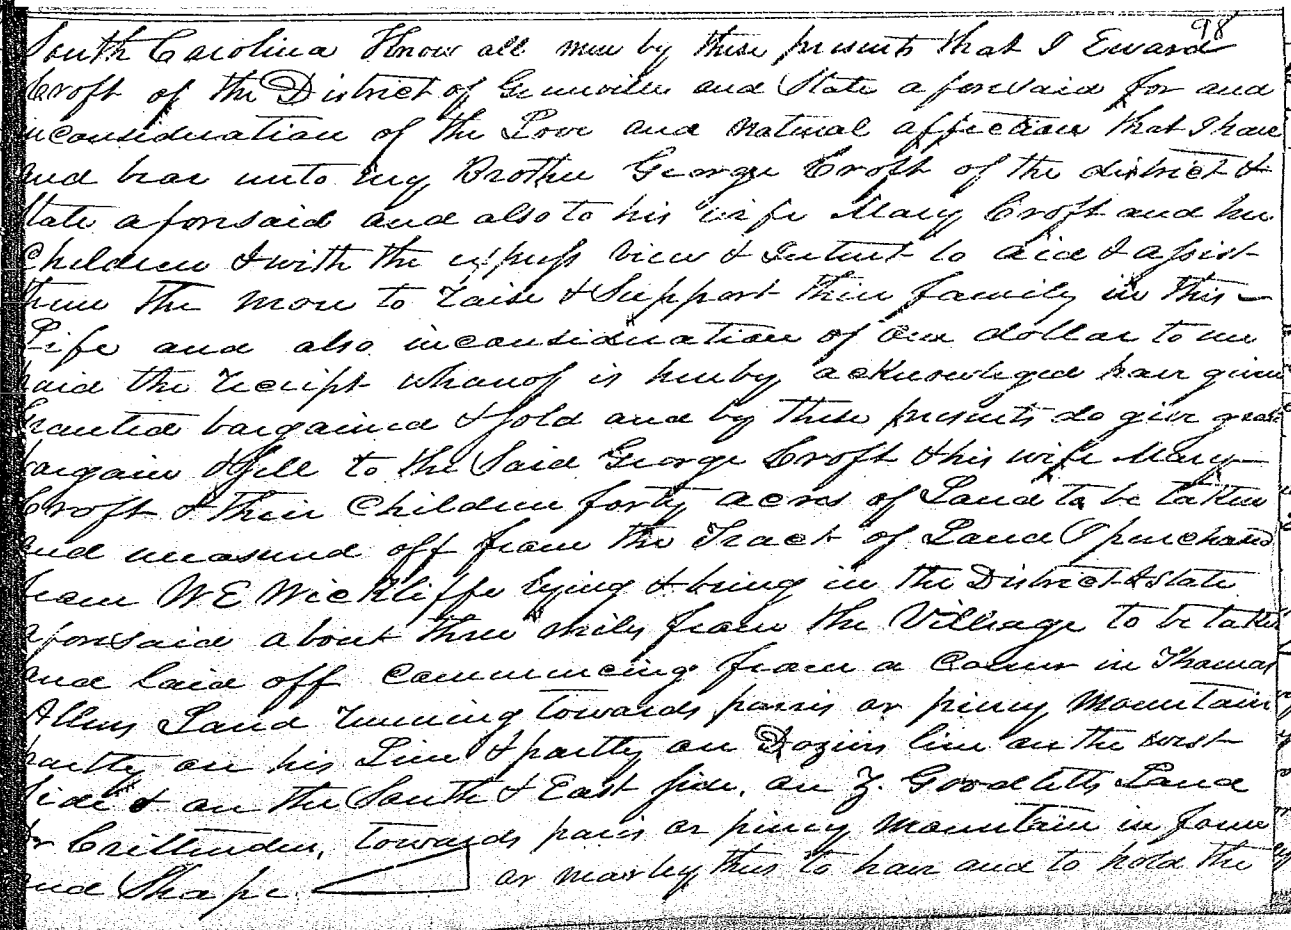 98
South Carolina Know all men by these presents that I Eward
Croft of the District of Greenville and State aforesaid for and
inconsideration of the Love and natural affection that I have
and bear unto my Brother George Croft of the district &
State aforesaid and also to his wife Mary Croft and her
Children & with the express view & Intent to aid & assist
them the more to raise & Support their family in this
Life and also inconsideration of one dollar to me
paid the receipt whareof is hereby acknowledged have given
granted bargained & sold and by these presents do give grant
bargain & sell to the Said George Croft & his wife Mary
Croft & their Children forty acres of Land to be taken
and measured off from the Tract of Land I purchased
from W E Wickliffe lying & being in the District & State
aforesaid about three miles from the Village to be taken
and laid off commencing from a Corner in Thomas
Allens Land running towards paris or piney Mountain
partly on his Line & partly on Doziers line on the west
Side & on the South & East side, on Z. Goodletts Land
or Crittenden, towards paris or piney Mountain in forme
and Shape or nearly thus to have and to hold the